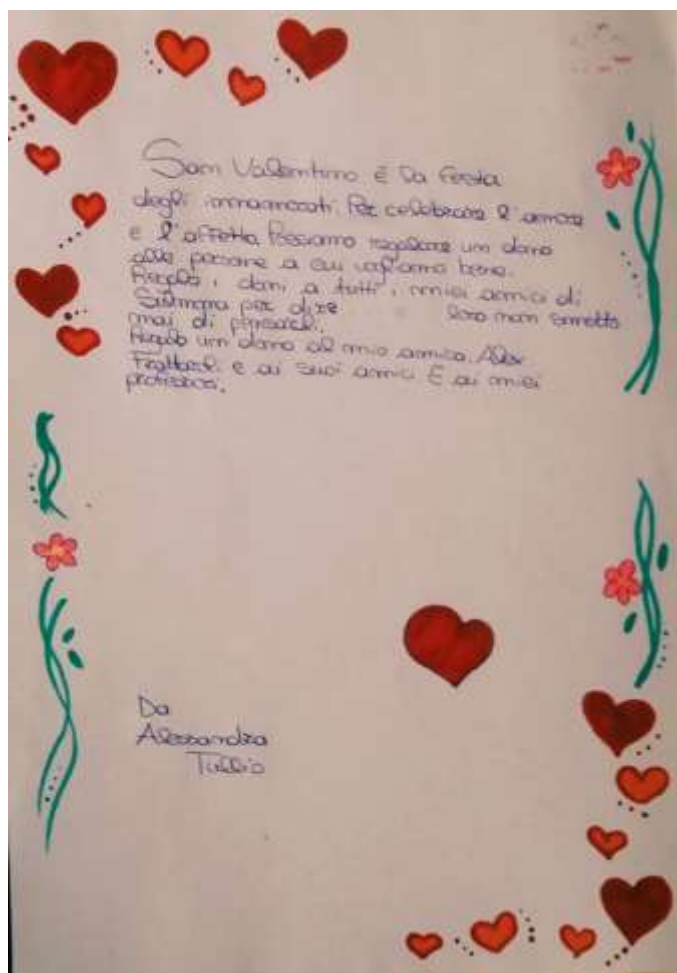 San Valentino è la festa
degli innamorati. Per celebrare l'amore
e l'affetto Possiamo regalare un dono
alle persone a cui vogliamo bene.
Regalo i doni a tutti i miei amici di
Sulmona per dire loro non smetto
mai di pensarli.
Regalo un dono al mio amico. Alex
e ai suoi amici E ai miei
professori.
Da
Alessandra
Tullio